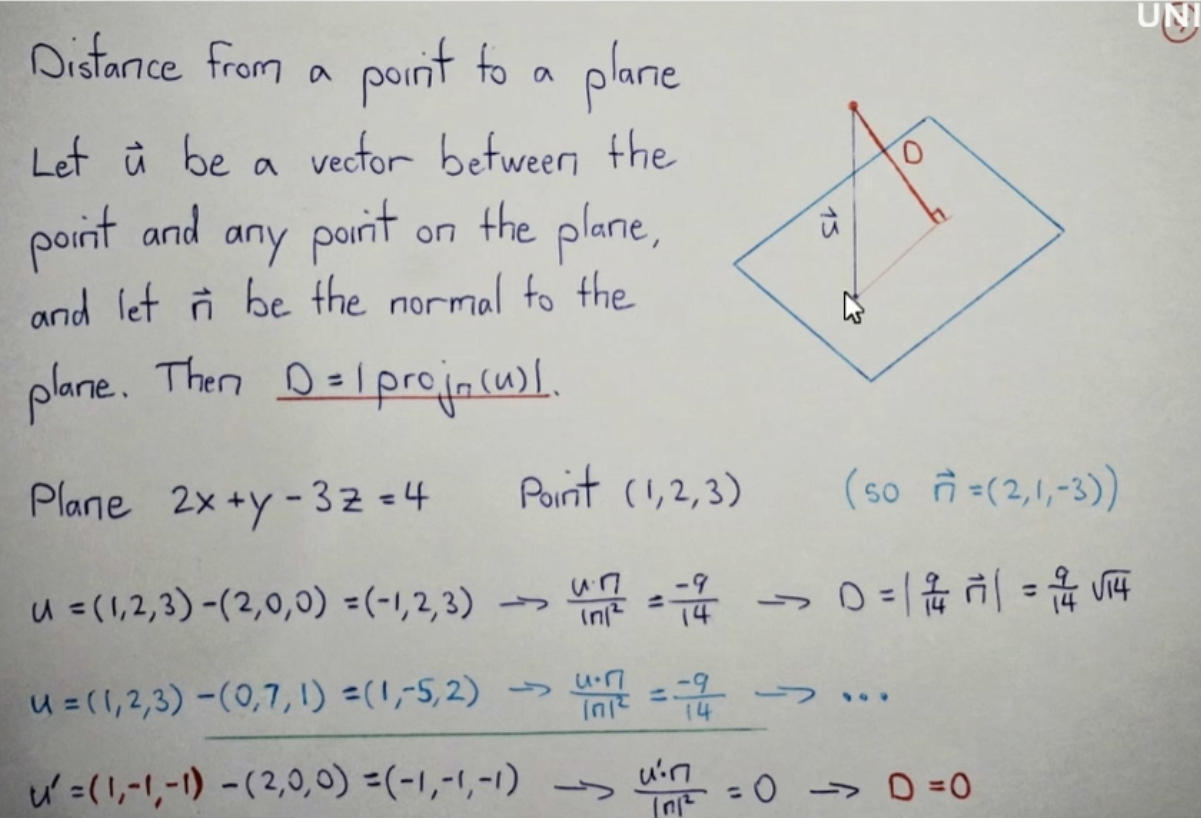 UNI
Distance from a point to a plane
Let u⃗ be a vector between the
point and any point on the plane,
and let n⃗ be the normal to the
plane. Then D = |projₙ(u)|.
D
u⃗
Plane 2x + y - 3z = 4 Point (1,2,3) (so n⃗ = (2,1,-3))
u = (1,2,3) - (2,0,0) = (-1,2,3) → u·n/|n|² = -9/14 → D = |9/14 n⃗| = 9/14 √14
u = (1,2,3) - (0,7,1) = (1,-5,2) → u·n/|n|² = -9/14 → ...
u' = (1,-1,-1) - (2,0,0) = (-1,-1,-1) → u'·n/|n|² = 0 → D = 0